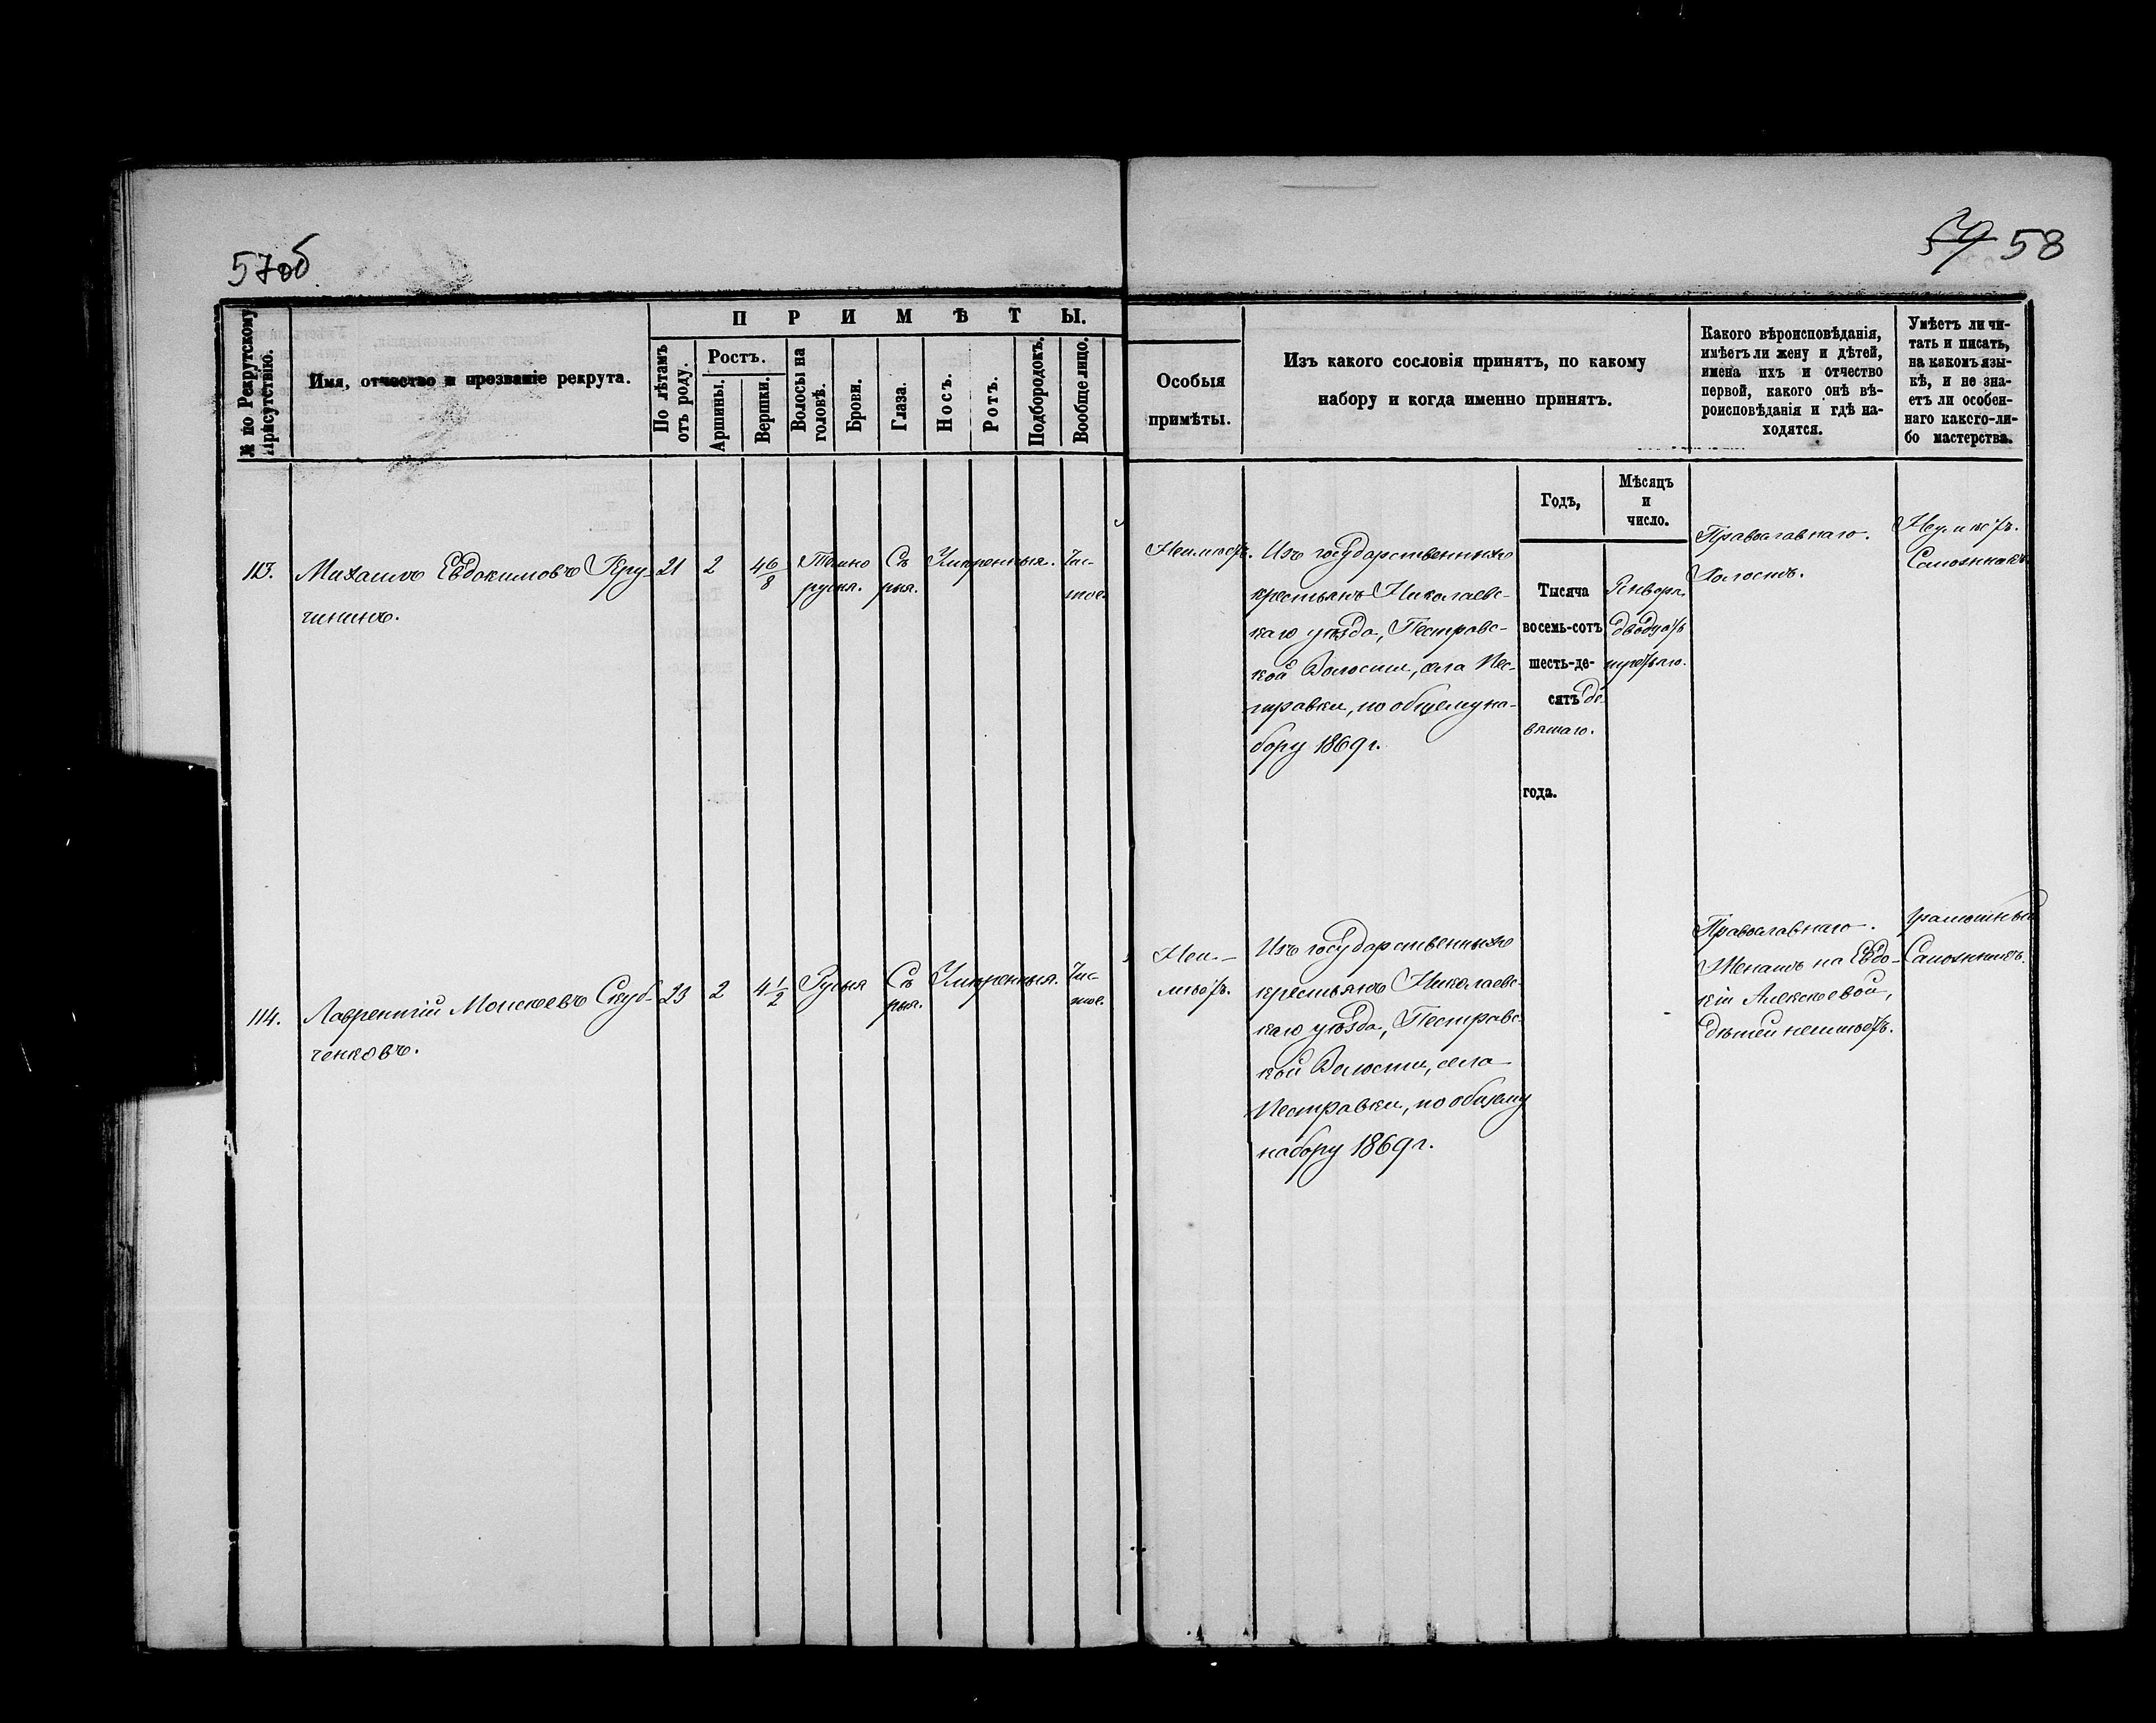 57об.
59 58
№ по Рекрутскому
Присутствію.
Имя, отчество и прозваніе рекрута.
ПРИМѢТЫ.
По лѣтамъ
отъ роду.
Ростъ.
Аршины.
Вершки.
Волосы на
головѣ.
Брови.
Глаза.
Носъ.
Ротъ.
Подбородокъ.
Вообще лицо.
Особыя
примѣты.
Изъ какого сословія принятъ, по какому
набору и когда именно принятъ.
Какого вѣроисповѣданія,
имѣетъ ли жену и дѣтей,
имена ихъ и отчество
первой, какого онѣ вѣ-
роисповѣданія и гдѣ на-
ходятся.
Умѣетъ ли чи-
тать и писать,
на какомъ язы-
кѣ, и не зна-
етъ ли особен-
наго какого-ли-
бо мастерства.
113.
Михаилъ Евдокимовъ Кру-
чининъ.
21
2
4 6/8
Темно
русыя.
Сѣ
рыя.
Умѣренныя.
Чис-
тое.
Неимѣетъ.
Изъ государственныхъ
крестьянъ Николаевс-
каго уѣзда, Пестравс-
кой Волости, села Пес-
травки, по общему на-
бору 1869 г.
Годъ,
Тысяча
восемь-сотъ
шесть-де-
сятъ де-
вятаго.
года.
Мѣсяцъ
и
число.
Января
двадцать
третьяго.
Православнаго.
Холостъ.
Неумѣетъ.
Сапожникъ.
114.
Лаврентій Моисеевъ Скуб-
ченковъ.
23
2
4 1/2
Русыя
Сѣ
рыя.
Умѣренныя.
Чис-
тое.
Неи-
мѣетъ.
Изъ государственныхъ
крестьянъ Николаевс-
каго уѣзда, Пестравс-
кой Волости, села
Пестравки, по общему
набору 1869 г.
Православнаго.
Женатъ на Евдо-
кіи Алексѣевой,
дѣтей неимѣетъ.
Грамотный
Сапожникъ.